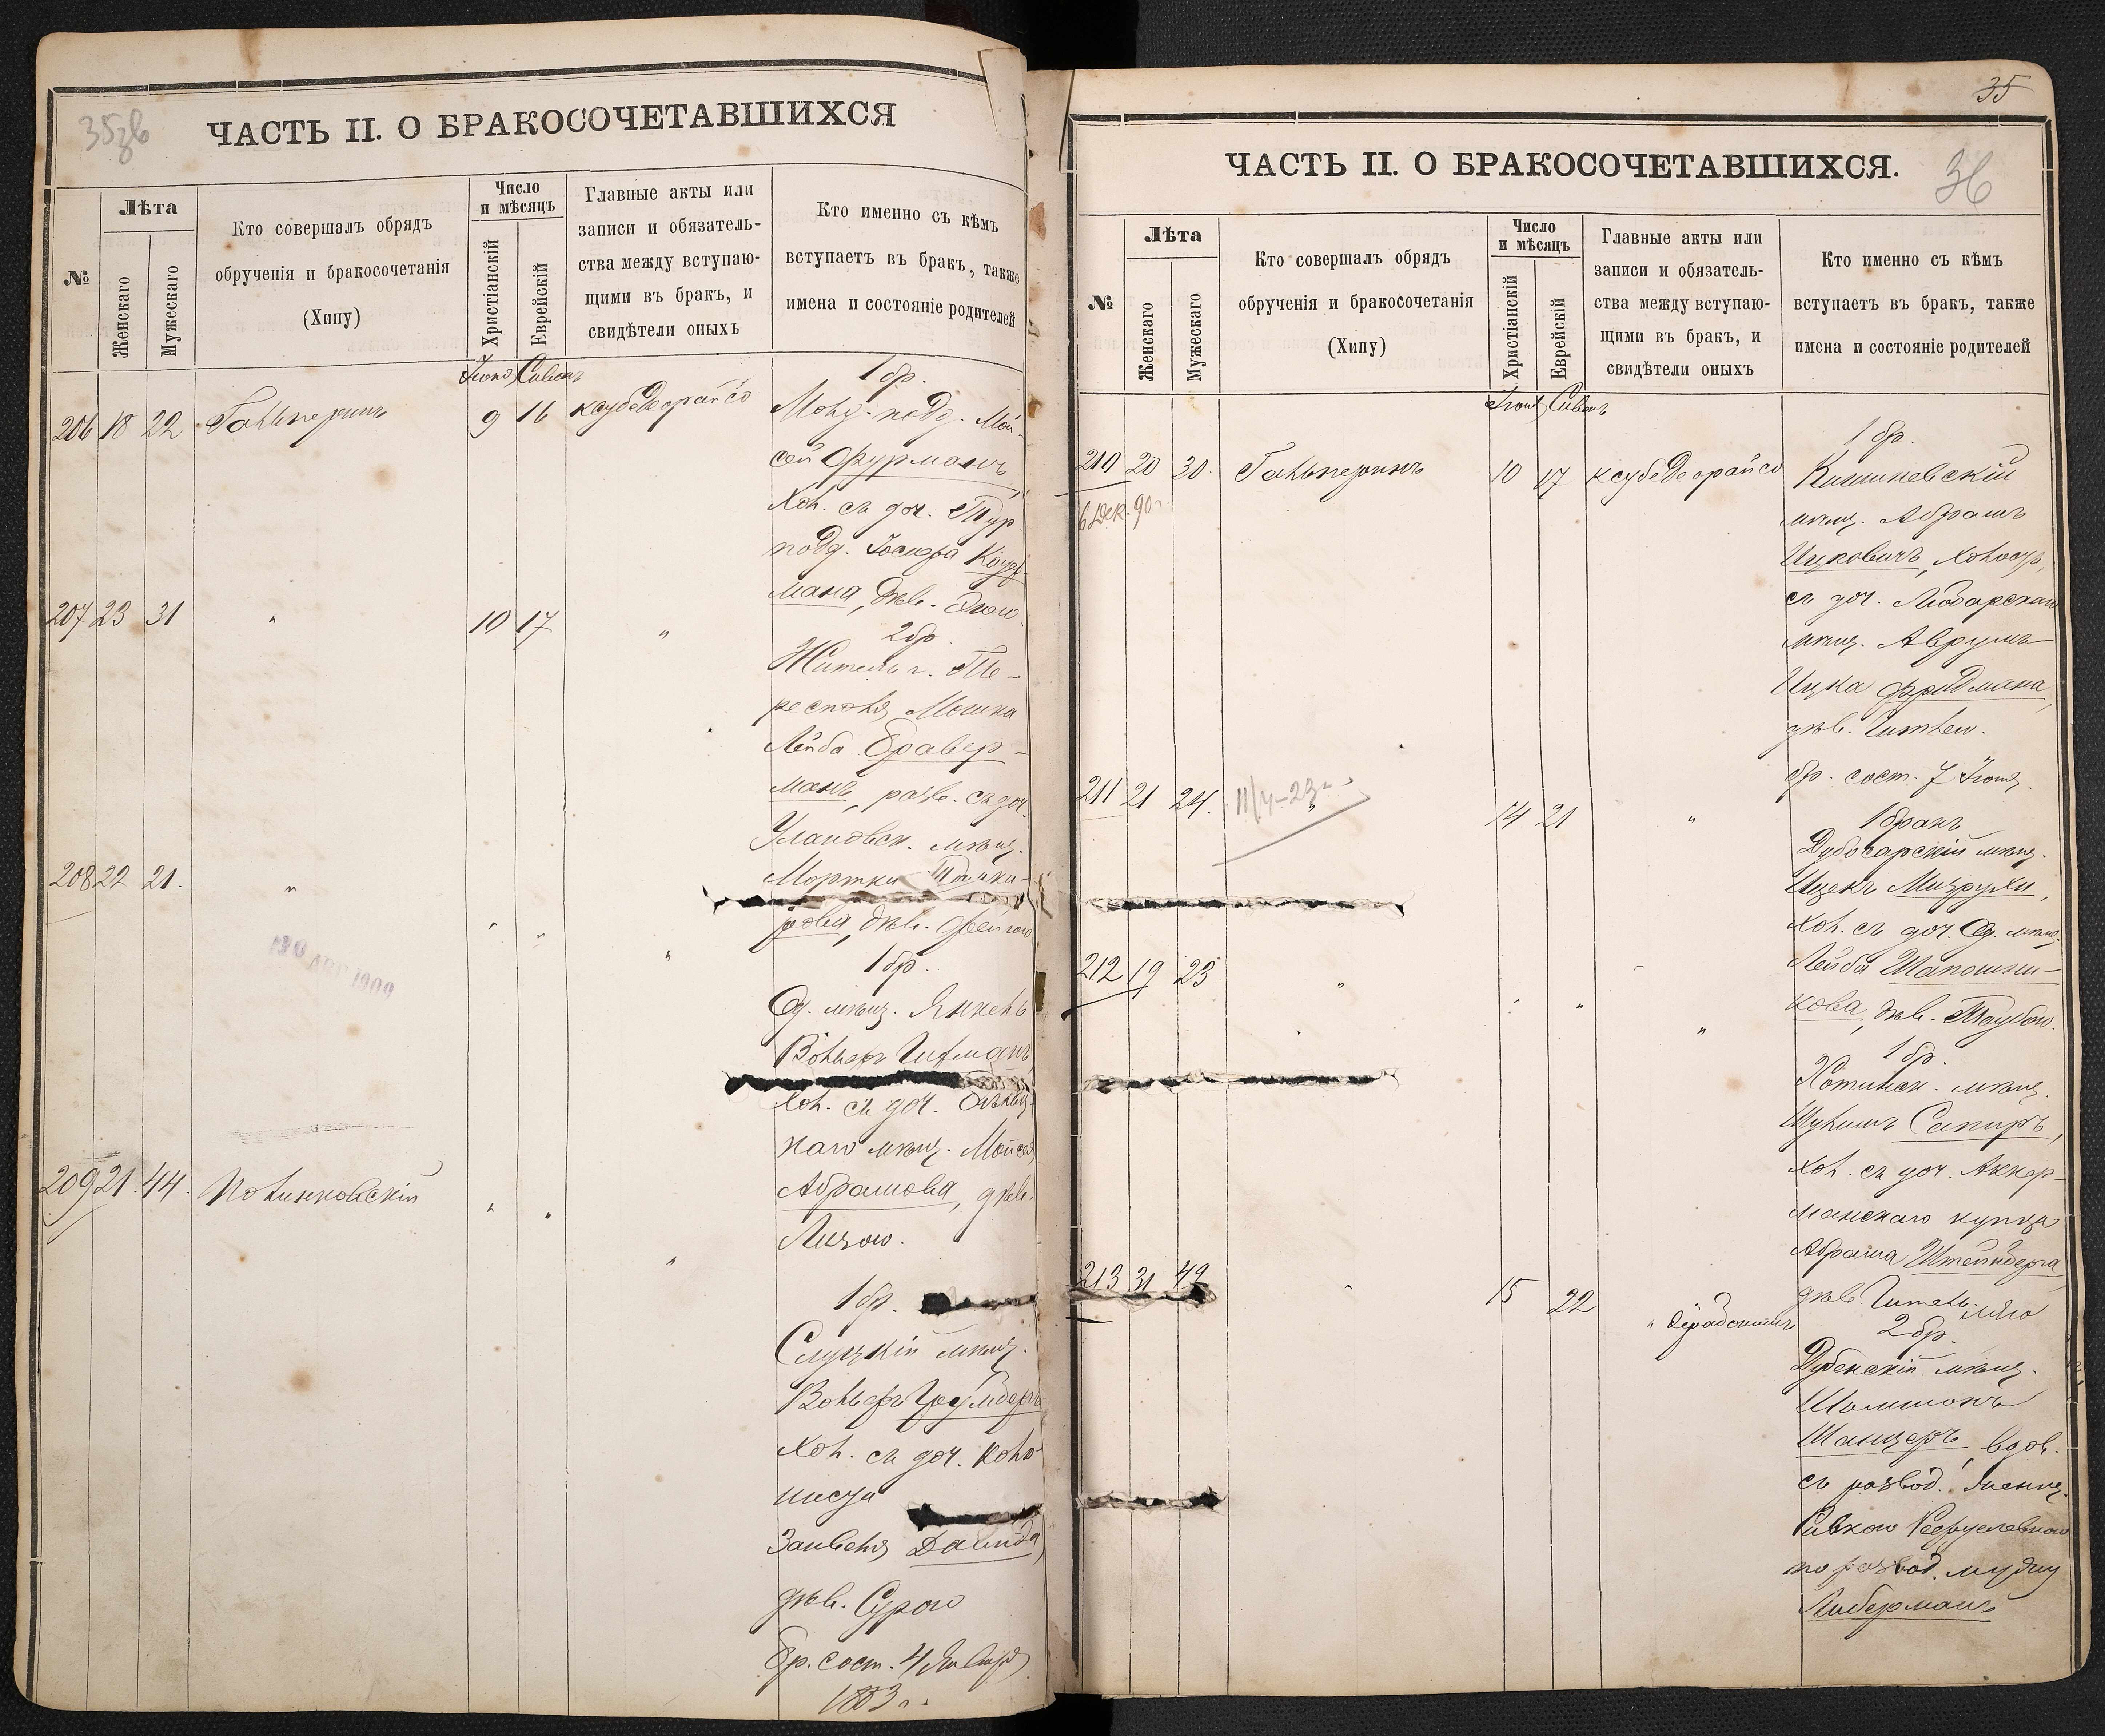 35зв
ЧАСТЬ II. О БРАКОСОЧЕТАВШИХСЯ
№
Лѣта
Женскаго
Мужескаго
Кто совершалъ обрядъ
обрученія и бракосочетанія
(Хипу)
Число
и мѣсяцъ
Христіанскій
Еврейскій
Главные акты или
записи и обязатель-
ства между вступаю-
щими въ бракъ, и
свидѣтели оныхъ
Кто именно съ кѣмъ
вступаетъ въ бракъ, также
имена и состояніе родителей
Іюнь Сивонъ
206 18 22 Гальперинъ 9 16 ксубедеорайсо
1 бр.
Молд. подд. Мой-
сей Фурманъ,
хол. съ доч. Тур.
подд. Іосифа Кауф-
мана, дѣв. Этею
207 23 31 " 10 17 "
2 бр.
Житель г. Ти-
располя Мошка
Лейба Бравер-
манъ, разв. съ доч.
Улановск. мѣщ.
Мортки
рова, дѣв. Фейгою
208 22 21. " " " "
1 бр.
Од. мѣщ. Янкель
Вольфъ Гитманъ,
хол. съ доч.
наго мѣщ. Мойсея
Абрамова, дѣв.
Лизою.
АПР 1909
209 21. 44. Полинковскій " " "
1 бр.
Слуцкій мѣщ.
Вольфъ
хол. съ доч. коло-
ниста
Занвеля Давида,
дѣв. Сурою
Бр. сост. 4 Января
1883 г.
35
ЧАСТЬ II. О БРАКОСОЧЕТАВШИХСЯ.
36
№
Лѣта
Женскаго
Мужескаго
Кто совершалъ обрядъ
обрученія и бракосочетанія
(Хипу)
Число
и мѣсяцъ
Христіанскій
Еврейскій
Главные акты или
записи и обязатель-
ства между вступаю-
щими въ бракъ, и
свидѣтели оныхъ
Кто именно съ кѣмъ
вступаетъ въ бракъ, также
имена и состояніе родителей
Іюнь Сивонъ
210 20 30. Гальперинъ 10 17 ксубедеорайсо
6 Дек. 90 г.
1 бр.
Кишиневскій
мѣщ. Абрамъ
Ицковичъ, холост,
съ доч. Любарскаго
мѣщ. Аврумъ
Ицка Фридмана,
дѣв. Гитлею.
бр. сост. 7 Іюня.
211 21 24. 11/4-23 г. " 14 21 "
1 бракъ
Дубосарскій мѣщ.
Ицекъ Мизрухи,
хол. съ доч. Од. мѣщ.
Лейба Шапошни-
кова, дѣв. Таубою.
212 19 23. " " " "
1 бр.
Хотинск. мѣщ.
Шулимъ Сапиръ,
хол. съ доч. Аккер-
манскаго купца
Абрама Штейнберга,
дѣв. Гитель
213 31 49 " 15 22 "
2 бр.
Дубенскій мѣщ.
Шолимонъ
Шанцеръ, вдов.
съ развод.
Ривкою
по развод. мужу
Либерманъ